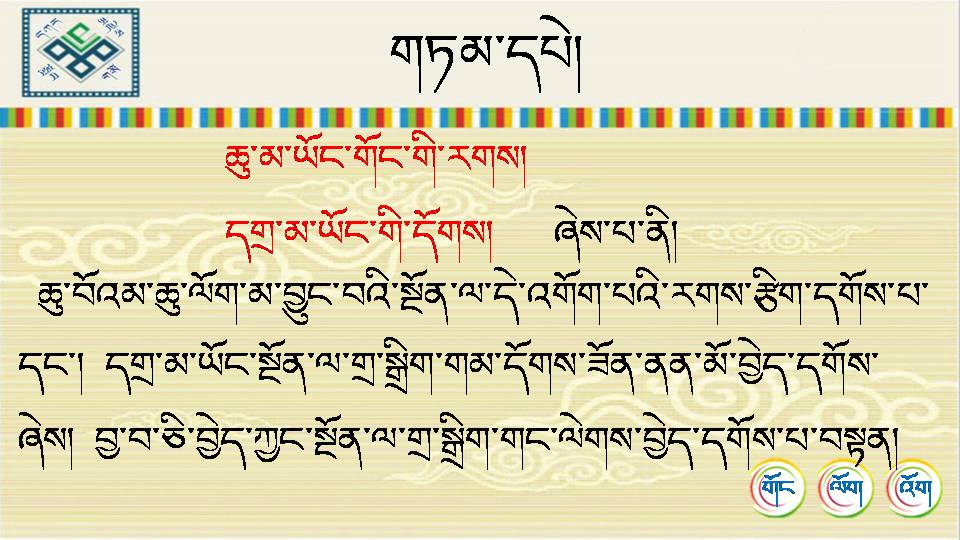 གཏམ་དཔེ།
ཆུ་མ་ཡོང་གོང་གི་རགས།
དགྲ་མ་ཡོང་གི་དོགས། ཞེས་པ་ནི།
ཆུ་བོའམ་ཆུ་ལོག་མ་བྱུང་བའི་སྔོན་ལ་དེ་འགོག་པའི་རགས་རྩིག་དགོས་པ་
དང་། དགྲ་མ་ཡོང་སྔོན་ལ་གྲ་སྒྲིག་གམ་དོགས་ཟོན་ནན་མོ་བྱེད་དགོས་
ཞེས། བྱ་བ་ཅི་བྱེད་ཀྱང་སྔོན་ལ་གྲ་སྒྲིག་གང་ལེགས་བྱེད་དགོས་པ་བསྟན།
གོང ལོག འོག